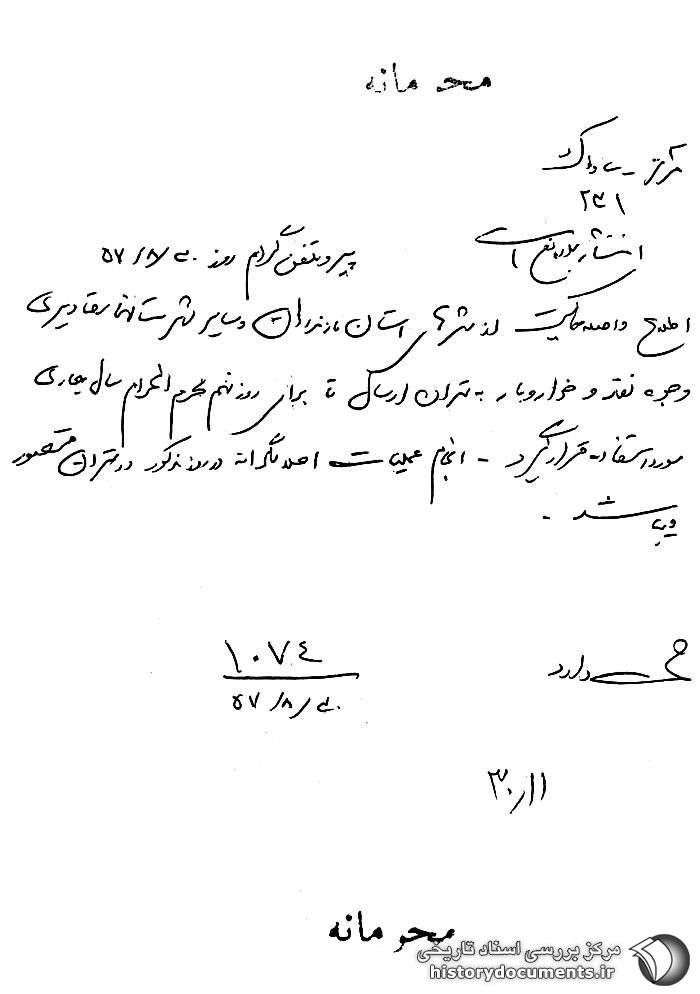 محرمانه
مرکز - ساواک
۲۳۱
انتشار
پیرو تلفن‌گرام روز ۵۷/۸/۳۰
اطلاع واصله حاکیست از شهرهای استان مازندران و سایر شهرستانها مقادیری
وجوه نقد و خواروبار به تهران ارسال تا برای روز نهم محرم الحرام سال جاری
مورد استفاده قرار گیرد - انجام عملیات اخلالگرانه در روز مذکور در تهران متصور
میباشد -
دارد
۱۰۷۴
۵۷/۸/۳۰
محرمانه
مرکز بررسی اسناد تاریخی
historydocuments.ir